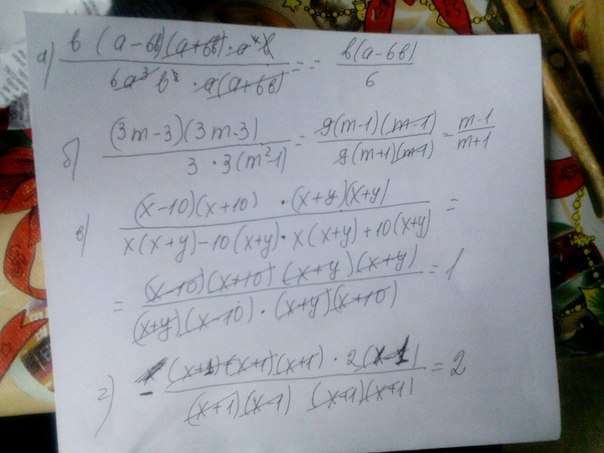 а) b (a-6b)(a+6b) · a⁴b / 6a³b² · a(a+6b) = = b(a-6b) / 6
б) (3m-3)(3m-3) / 3 · 3(m²-1) = 9(m-1)(m-1) / 9(m+1)(m-1) = m-1 / m+1
в) (x-10)(x+10) · (x+y)(x+y) / x(x+y)-10(x+y) · x(x+y)+10(x+y) =
= (x-10)(x+10) (x+y)(x+y) / (x+y)(x-10) · (x+y)(x+10) = 1
г) (x+1)(x+1)(x+1) · 2(x-1) / (x+1)(x-1) (x+1)(x+1) = 2